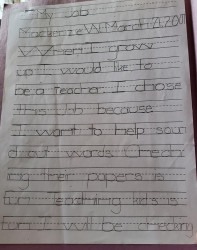 My Job
Mackenzie W. March 14, 2001
When I grow
up I would like to
be a teacher. I chose
this job because
I want to help soun
d out words. Check
ing their papers is
fun. Teaching kids is
fun. I will be checking